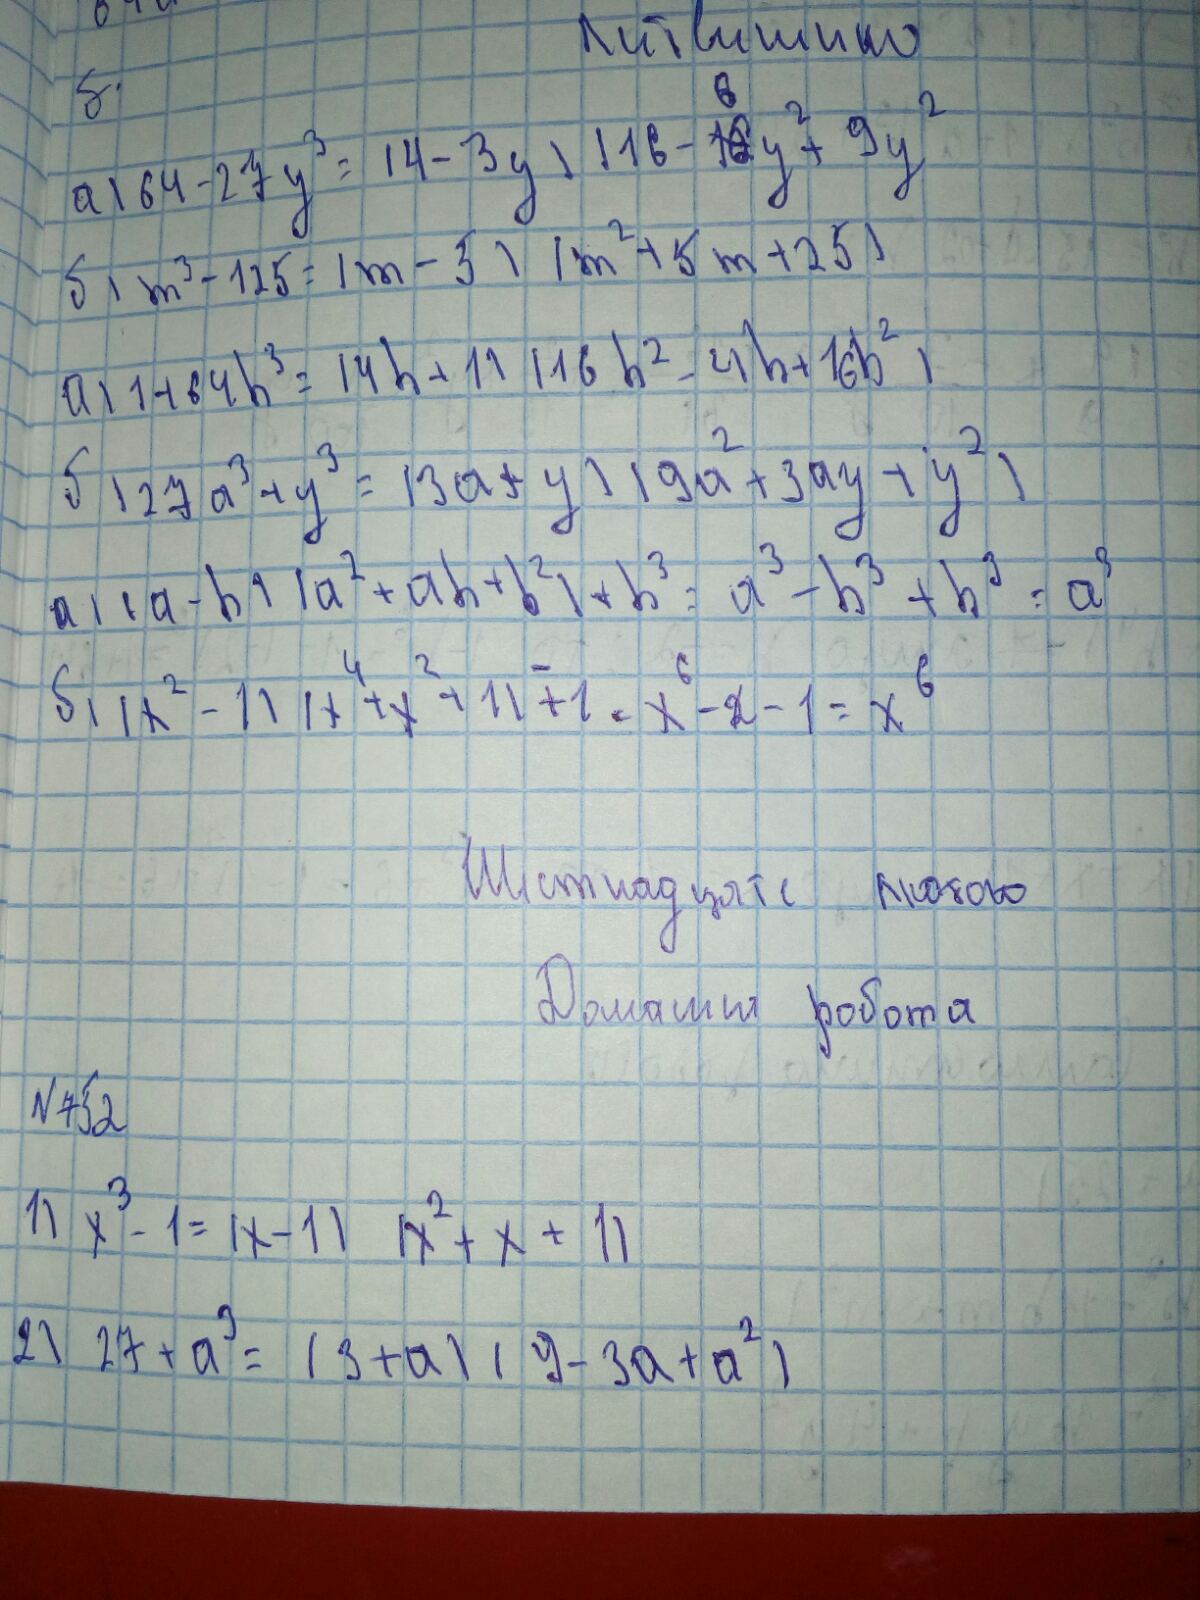 Литвишко
5.
а) 64 - 27y³ = (4 - 3y) (16 - 6y² + 9y²
б) m³ - 125 = (m - 5) (m² + 5m + 25)
а) 1 + 64b³ = (4b + 1) (16b² - 4b + 16b²)
б) 27a³ + y³ = (3a + y) (9a² + 3ay + y²)
а) (a - b) (a² + ab + b²) + b³ = a³ - b³ + b³ = a³
б) (x² - 1) (x⁴ + x² + 1) + 1 = x⁶ - 2 - 1 = x⁶
Шістнадцяте лютого
Домашня робота
N752
1) x³ - 1 = (x - 1) (x² + x + 1)
2) 27 + a³ = (3 + a) (9 - 3a + a²)